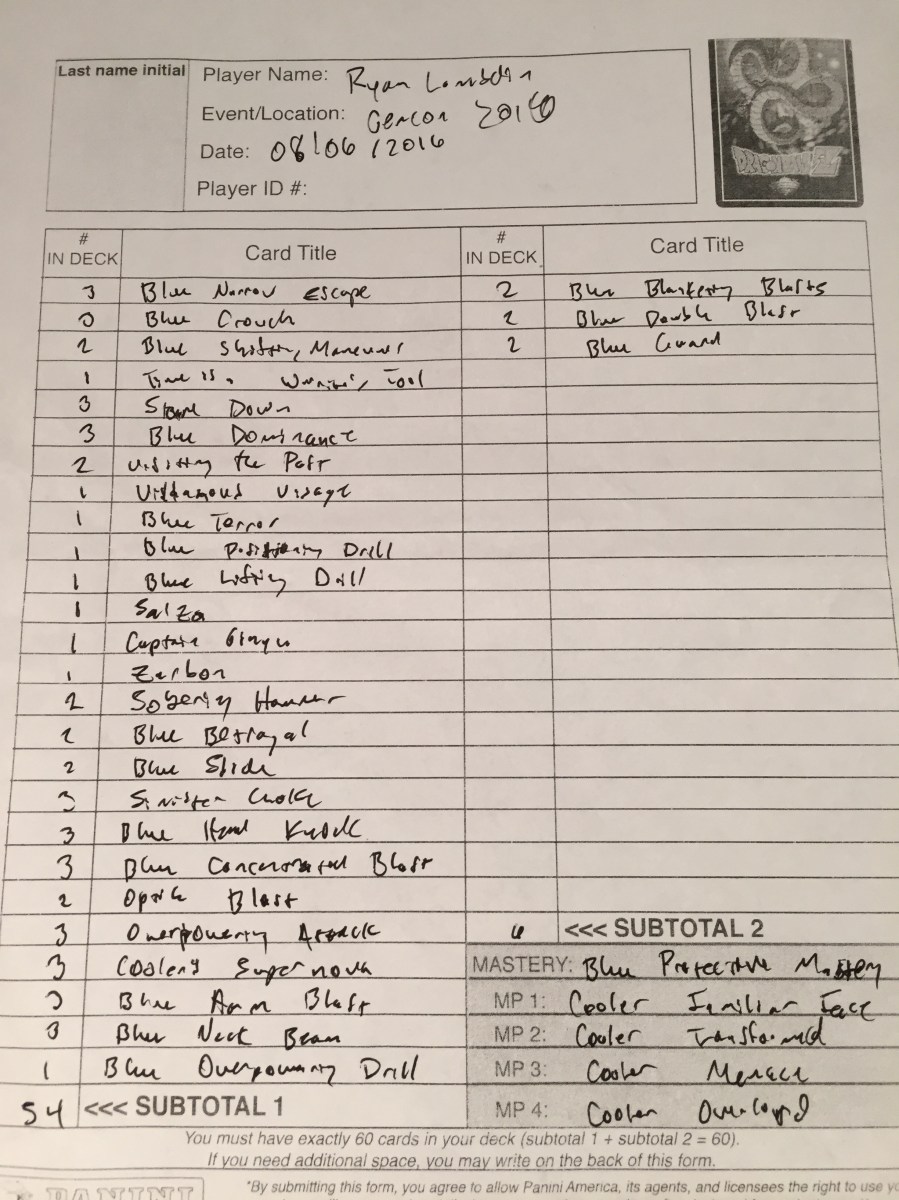 Last name initial
Player Name: Ryan
Event/Location: Gencon 2016
Date: 08/06/2016
Player ID #:
# IN DECK Card Title
3 Blue Narrow Escape
3 Blue Crouch
2 Blue Maneuver
1 Time is a Warrior's Tool
3 Stare Down
3 Blue Dominance
2 Visiting the Past
1 Villainous Visage
1 Blue Terror
1 Blue Positioning Drill
1 Blue Lifting Drill
1 Salza
1 Captain Ginyu
1 Zarbon
2 Sobering Hammer
2 Blue Betrayal
2 Blue Slide
3 Sinister Choke
3 Blue Head Knock
3 Blue Concentrated Blast
2 Optic Blast
3 Overpowering Attack
3 Cooler's Supernova
3 Blue Arm Blast
3 Blue Neck Beam
1 Blue Overpowering Drill
54 <<< SUBTOTAL 1
# IN DECK Card Title
2 Blue Blanketing Blasts
2 Blue Double Blast
2 Blue Guard
6 <<< SUBTOTAL 2
MASTERY: Blue Protective Mastery
MP 1: Cooler Familiar Face
MP 2: Cooler Transformed
MP 3: Cooler Menace
MP 4: Cooler Overlord
You must have exactly 60 cards in your deck (subtotal 1 + subtotal 2 = 60).
If you need additional space, you may write on the back of this form.
PANINI
*By submitting this form, you agree to allow Panini America, its agents, and licensees the right to use